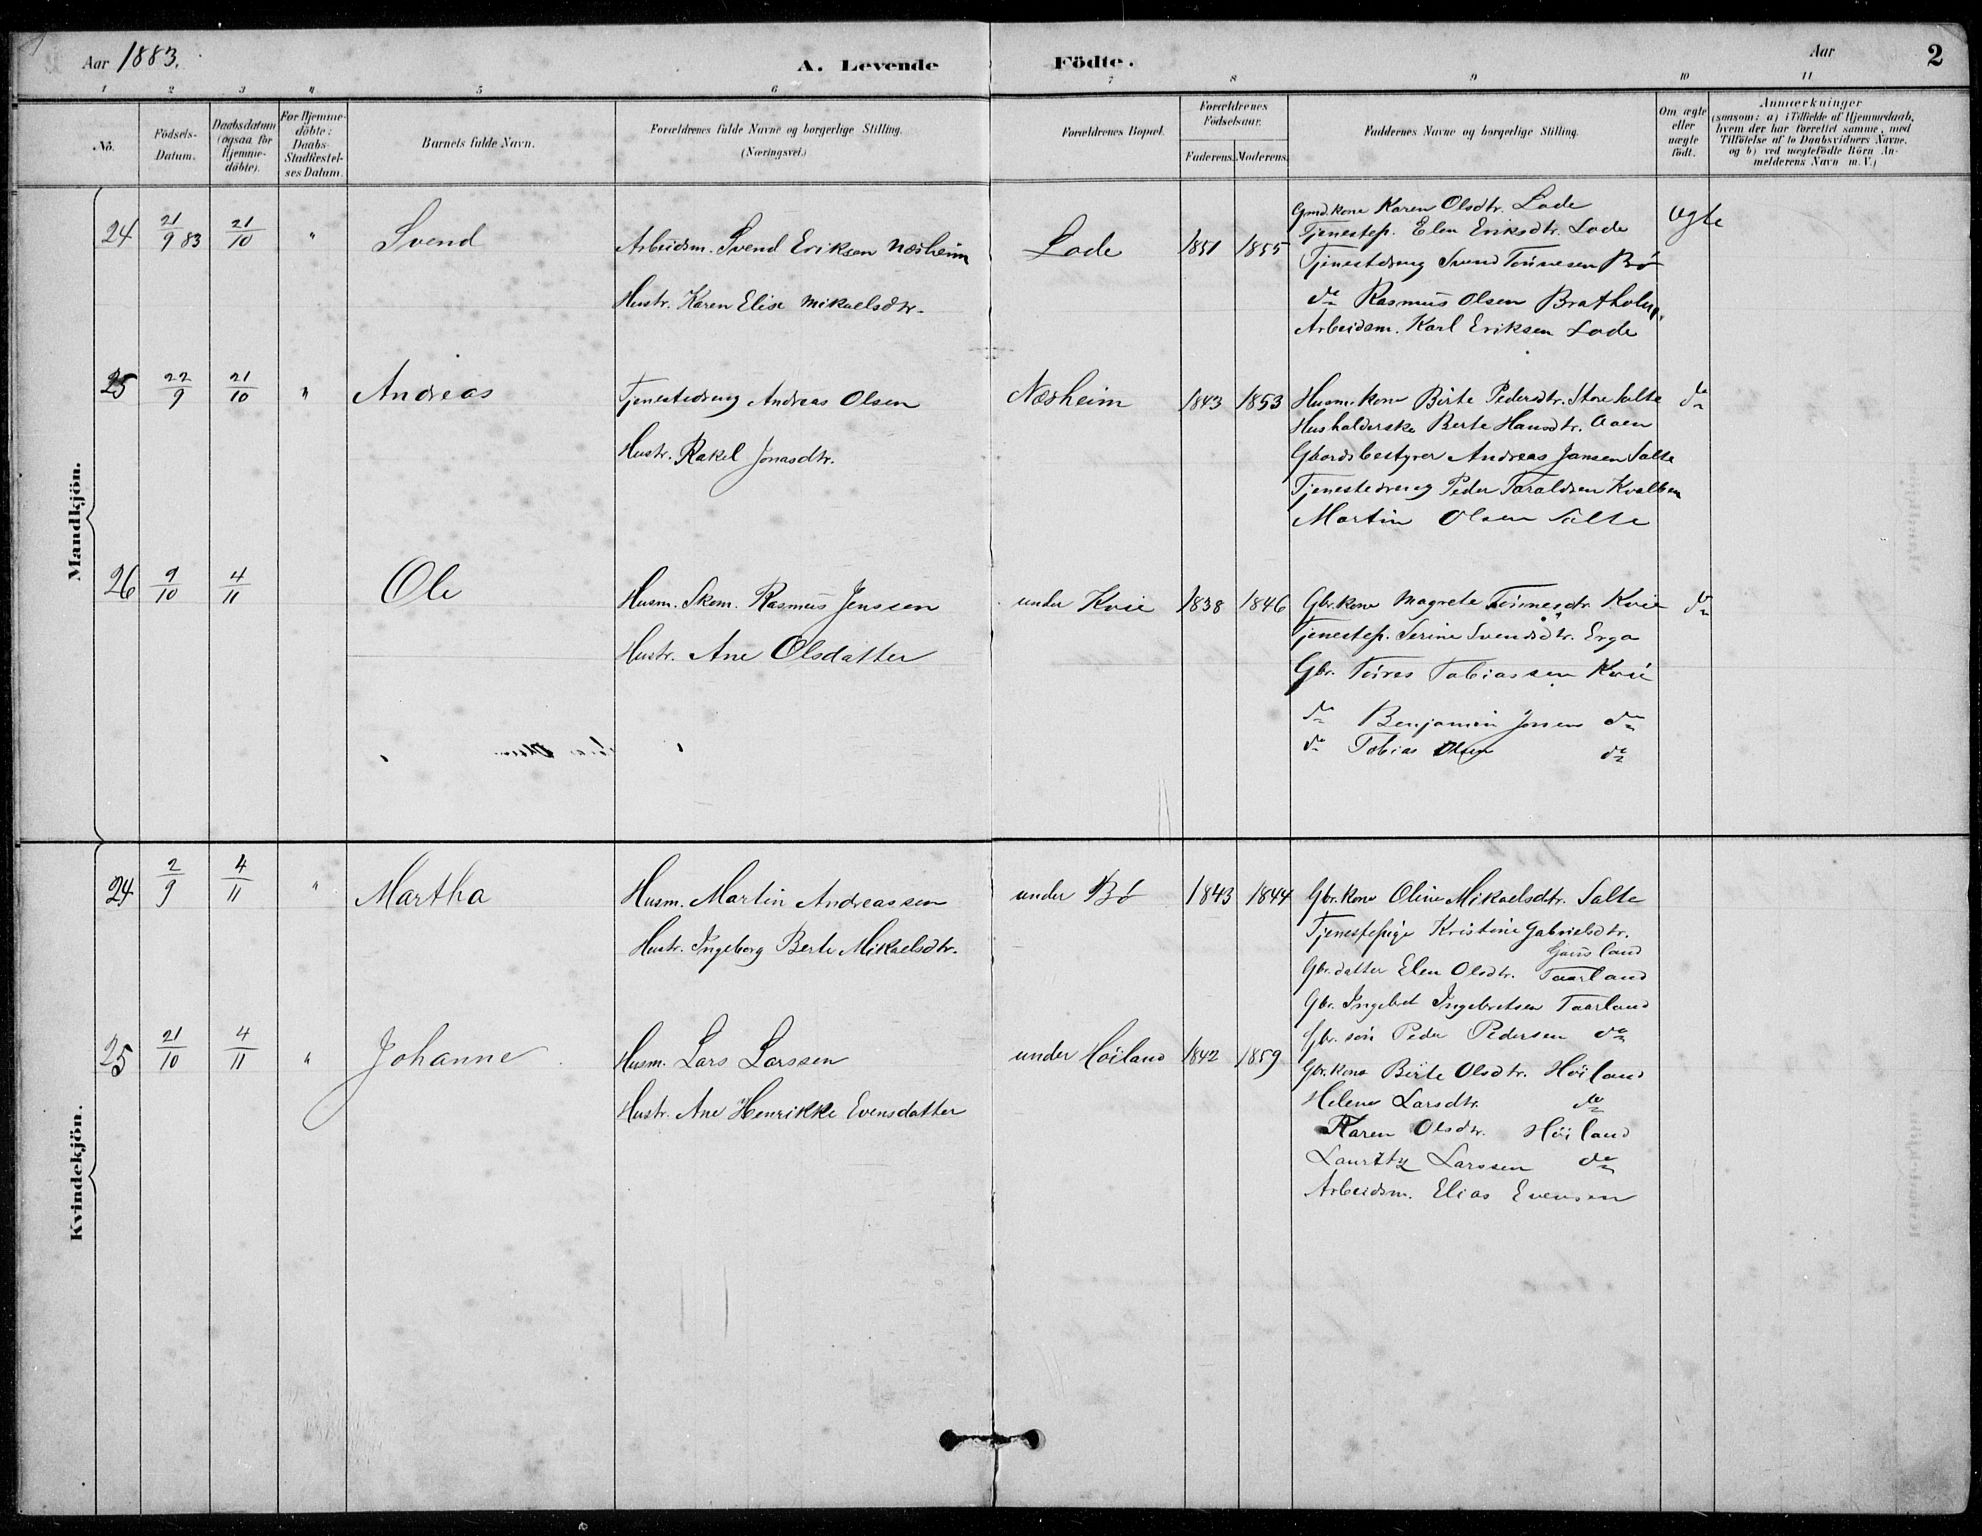 Aar 1883.
A. Levende Födte.
Aar
2
1 2 3 4 5 6 7 8 9 10 11
No.
Födsels-Datum.
Daabsdatum (ogsaa for Hjemme-döbte).
For Hjemme-döbte: Daabs-Stadfæstel-ses Datum.
Barnets fulde Navn.
Forældrenes fulde Navne og borgerlige Stilling. (Næringsvei.)
Forældrenes Bopæl.
Forældrenes Födselsaar.
Faderens. Moderens.
Faddernes Navne og borgerlige Stilling.
Om ægte eller uægte födt.
Anmærkninger (saasom: a) i Tilfælde af Hjemmedaab, hvem der har forrettet samme, med Tilföielse af to Daabsvidners Navne, og b) ved uægtefödte Börn An-melderens Navn m. V.)
Mandkjön.
24 21/9 83 21/10 " Svend
Arbeidsm. Svend Eriksen Næsheim
Hustr. Karen Elise Mikaelsdtr.
Lode 1851 1855
Gmd.kone Karen Olsdtr. Lode
Tjenestep. Elen Eriksdtr. Lode
Tjenestdreng Svend Tønnesen Bø
do Rasmus Olsen Bratholm.
Arbeidsm. Karl Eriksen Lode
ægte
25 22/9 21/10 " Andreas
Tjenestedreng Andreas Olsen
Hustr. Rakel Jonasdtr.
Næsheim 1843 1853
Husm.kone Birte Pedersdtr. Store Salte
Husholderske Berte Hansdtr. Aaen
Gaardsbestyrer Andreas Jansen Salte
Tjenestedreng Peder Taraldsen Kvalbein
Martin Olsen Salte
do
26 9/10 4/11 Ole
Husm. Skom. Rasmus Jenssen
Hustr. Ane Olsdatter
under Kvie 1838 1846
Gbr.kone Magrete Tønnesdtr. Kvie
Tjenestep. Serine Svendsdtr. Erga
Gbr. Tøires Tobiassen Kvie
do Benjamin Jonsen do
do Tobias Olsen do
do
Kvindekjön.
24 2/9 4/11 " Martha
Husm. Martin Andreassen
Hustr. Ingeborg Berte Mikaelsdtr.
under Bø 1843 1844
Gbr.kone Oline Mikaelsdtr. Salte
Tjenestepige Kristine Gabrielsdtr.
Gausland
Gbr.datter Elen Olsdtr. Taarland
Gbr. Ingebret Ingebretsen Taarland
Gbr. søn Peder Pedersen do
25 21/10 4/11 " Johanne
Husm. Lars Larssen
Hustr. Ane Henrikke Evensdatter
under Høiland 1842 1859
Gbr.kone Birte Olsdtr. Høiland
Helene Larsdtr. do
Karen Olsdtr. Høiland
Lauritz Larssen do
Arbeidsm. Elias Evensen